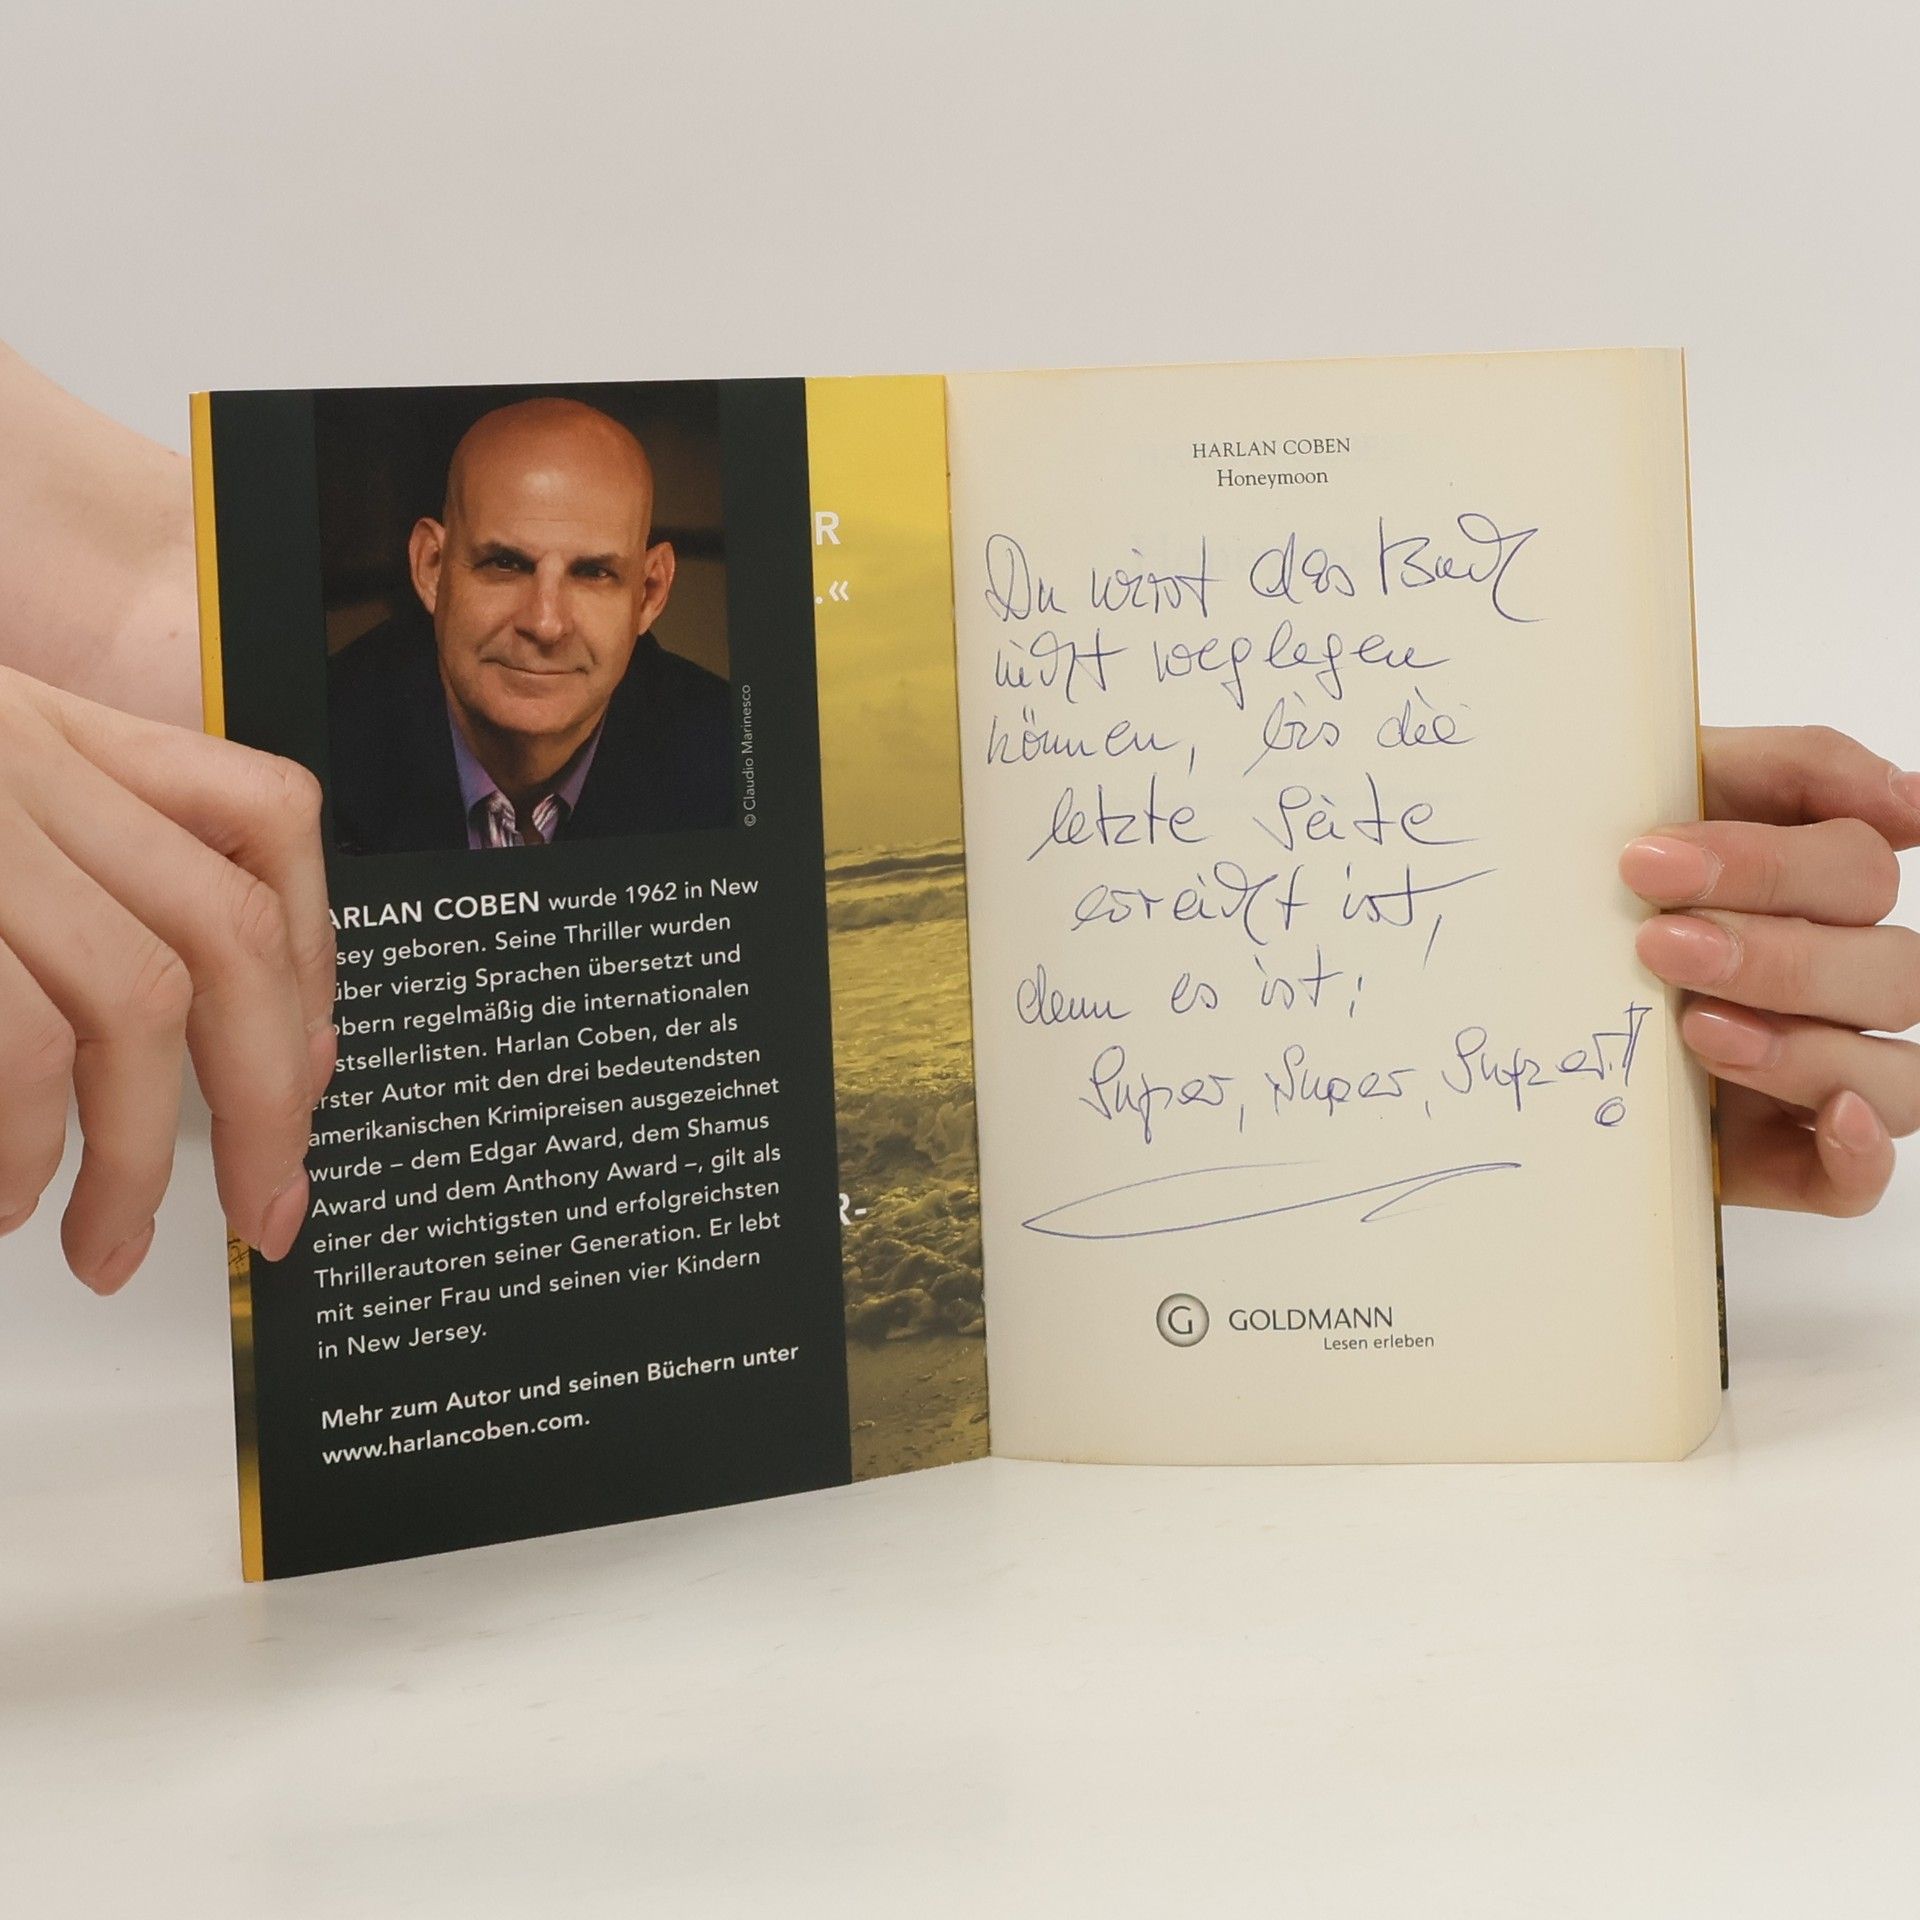 © Claudio Marinesco
ARLAN COBEN wurde 1962 in New
sey geboren. Seine Thriller wurden
über vierzig Sprachen übersetzt und
obern regelmäßig die internationalen
stsellerlisten. Harlan Coben, der als
erster Autor mit den drei bedeutendsten
amerikanischen Krimipreisen ausgezeichnet
wurde – dem Edgar Award, dem Shamus
Award und dem Anthony Award –, gilt als
einer der wichtigsten und erfolgreichsten
Thrillerautoren seiner Generation. Er lebt
mit seiner Frau und seinen vier Kindern
in New Jersey.
Mehr zum Autor und seinen Büchern unter
www.harlancoben.com.
R
.«
R-
HARLAN COBEN
Honeymoon
Du wirst das Buch
nicht weglegen
können, bis die
letzte Seite
erreicht ist,
denn es ist:
Super, Super, Super!!
G GOLDMANN
Lesen erleben